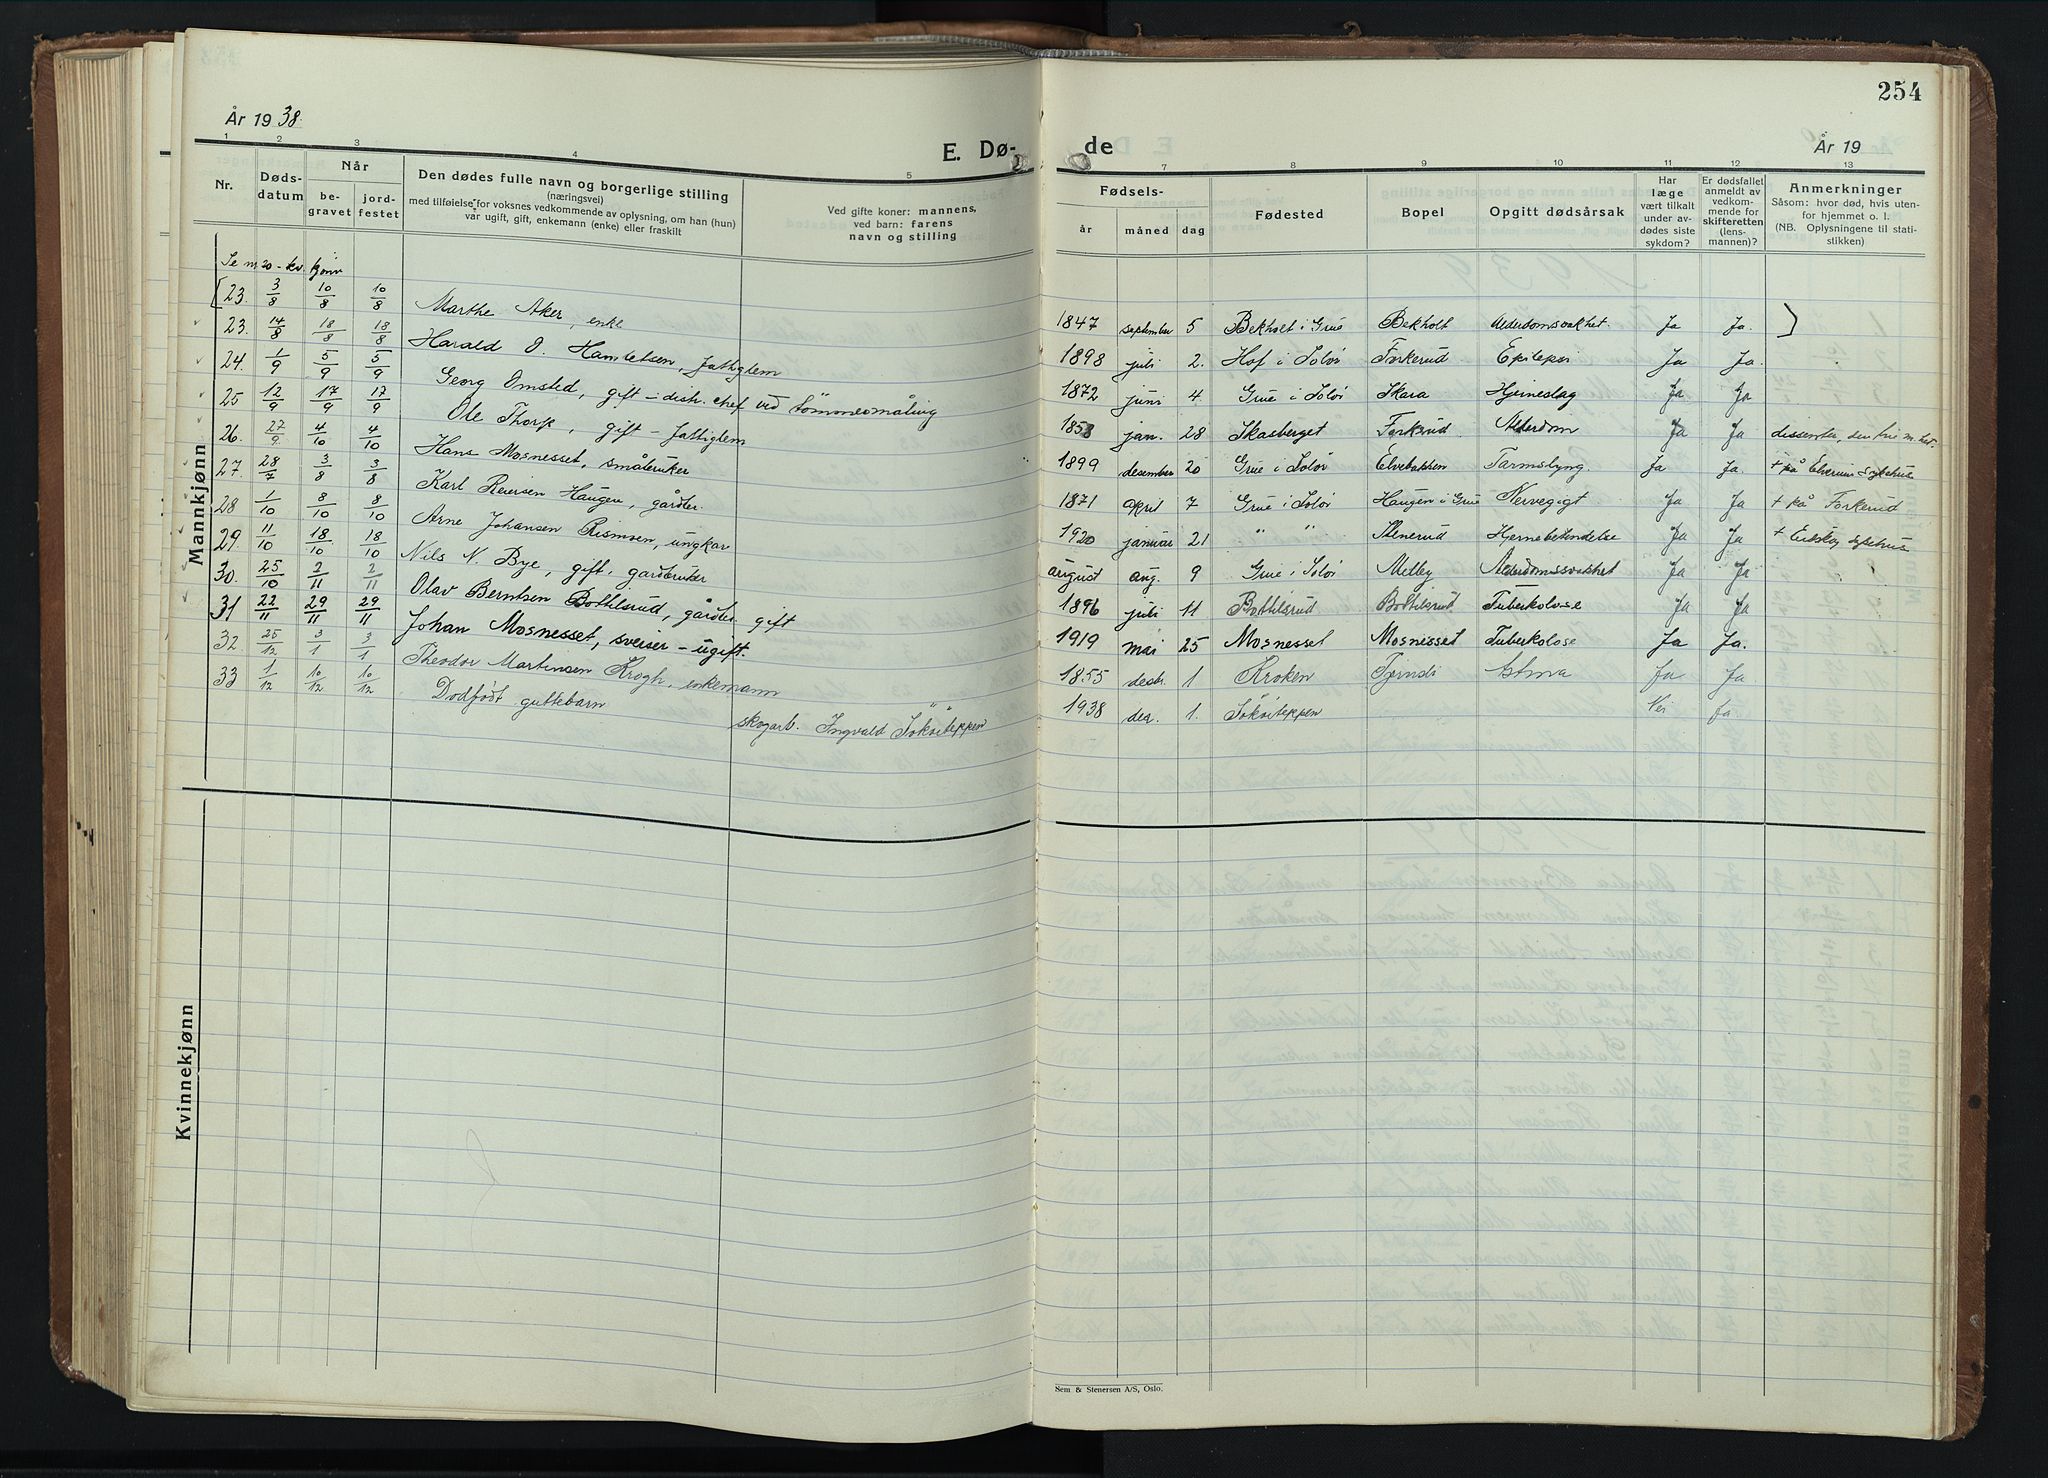 254
År 1938.
E. Dø-
de
År 19
1 2 3 4 5 7 8 9 10 11 12 13
Nr.
Døds-
datum
Når
be-
gravet
jord-
festet
Den dødes fulle navn og borgerlige stilling
(næringsvei)
med tilføielse for voksnes vedkommende av oplysning, om han (hun)
var ugift, gift, enkemann (enke) eller fraskilt
Ved gifte koner: mannens,
ved barn: farens
navn og stilling
Fødsels-
år måned dag
Fødested
Bopel
Opgitt dødsårsak
Har
læge
vært tilkalt
under av-
dødes siste
sykdom?
Er dødsfallet
anmeldt av
vedkom-
mende for
skifteretten
(lens-
mannen)?
Anmerkninger
Såsom: hvor død, hvis uten-
for hjemmet o. l.
(NB. Oplysningene til stati-
stikken)
Mannkjønn
Se nr 20 - kv. kjønn
[23. 3/8 10/8 10/8 Marthe Aker, enke 1847 september 5 Bekholt i Grue Bekholt Alderdomsvakhet. Ja Ja. ]
23. 14/8 18/8 18/8 Harald O. Hamletsen, fattiglem 1898 juli 2. Hof i Solør Forkerud Epilepsi Ja Ja.
24. 1/9 5/9 5/9 Georg Omsted, gift - distr. chef ved tømmermåling 1872 juni 4. Grue i Solør Skara Hjerneslag Ja Ja
25 12/9 17/9 17/9 Ole Thorp, gift - fattiglem 1858 jan. 28 Skasberget Forkerud Alderdom Ja Ja dissenter, den frie m.
26. 27/9 4/10 4/10 Hans Mosnesset, småbruker 1899 desember 20 Grue i Solør Elvebakken Tarmslyng Ja Ja + på Elverum Sykehus
27. 28/7 3/8 3/8 Karl Reiersen Haugen, gårdbr. 1871 april 7 Grue i Solør Haugen i Grue Nervegigt Ja Ja + på Forkerud
28 1/10 8/10 8/10 Arne Johansen Rismoen, ungkar 1920 januar 21 " " Stenerud Hjernebetendelse Ja Ja + Eidskog sykehus
29. 11/10 18/10 18/10 Nils N. Bye, gift, gardbruker august aug. 9 Grue i Solør Melby Alderdomssvakhet Ja Ja
30. 25/10 2/11 2/11 Olav Berntsen Bottilsrud, gårdbr. gift 1896 juli 11 Bottilsrud Bottilsrud Tuberkolose Ja Ja
31 22/11 29/11 29/11 Johan Mosnesset, sveiser - ugift. 1919 mai 25 Mosnesset Mosnesset Tuberkolose Ja Ja.
32. 25/12 3/1 3/1 Theodor Martinsen Krogh, enkemann " " 1855 desbr. 1 Kroken Tjernsli Astma Ja Ja
33 1/12 10/12 10/12 Dødfødt guttebarn skogarb. Ingvald Søkviteppen 1938 des. 1. Søkviteppen Nei Ja
Kvinnekjønn
Sem & Stenersen A/S, Oslo.